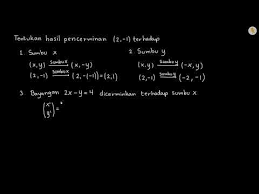 Tentukan hasil pencerminan (2,-1) terhadap
1. Sumbu x
(x,y) sumbu x → (x,-y)
(2,-1) sumbu x → (2,-(-1)) = (2,1)
2. Sumbu y
(x,y) sumbu y → (-x,y)
(2,-1) sumbu y → (-2,-1)
3. Bayangan 2x-y=4 dicerminkan terhadap sumbu x
(x' y') =